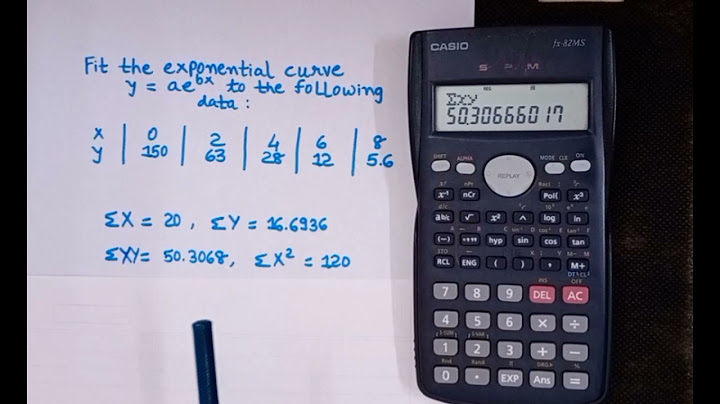 Fit the exponential curve
y = ae^bx to the following
data :
x | 0 | 2 | 4 | 6 | 8
y | 150 | 63 | 28 | 12 | 5.6
ΣX = 20, ΣY = 16.6936
ΣXY = 50.3068, ΣX² = 120
CASIO fx-82MS
S-V.P.A.M.
Σxy
50.30666017
SHIFT ALPHA REPLAY MODE CLR ON
x⁻¹ nCr Pol( x³
ab/c √ x² ^ log ln
(-) °’” hyp sin cos tan
RCL ENG ( ) , M+
7 8 9 DEL AC
4 5 6 × ÷
1 2 3 + −
0 . EXP Ans =